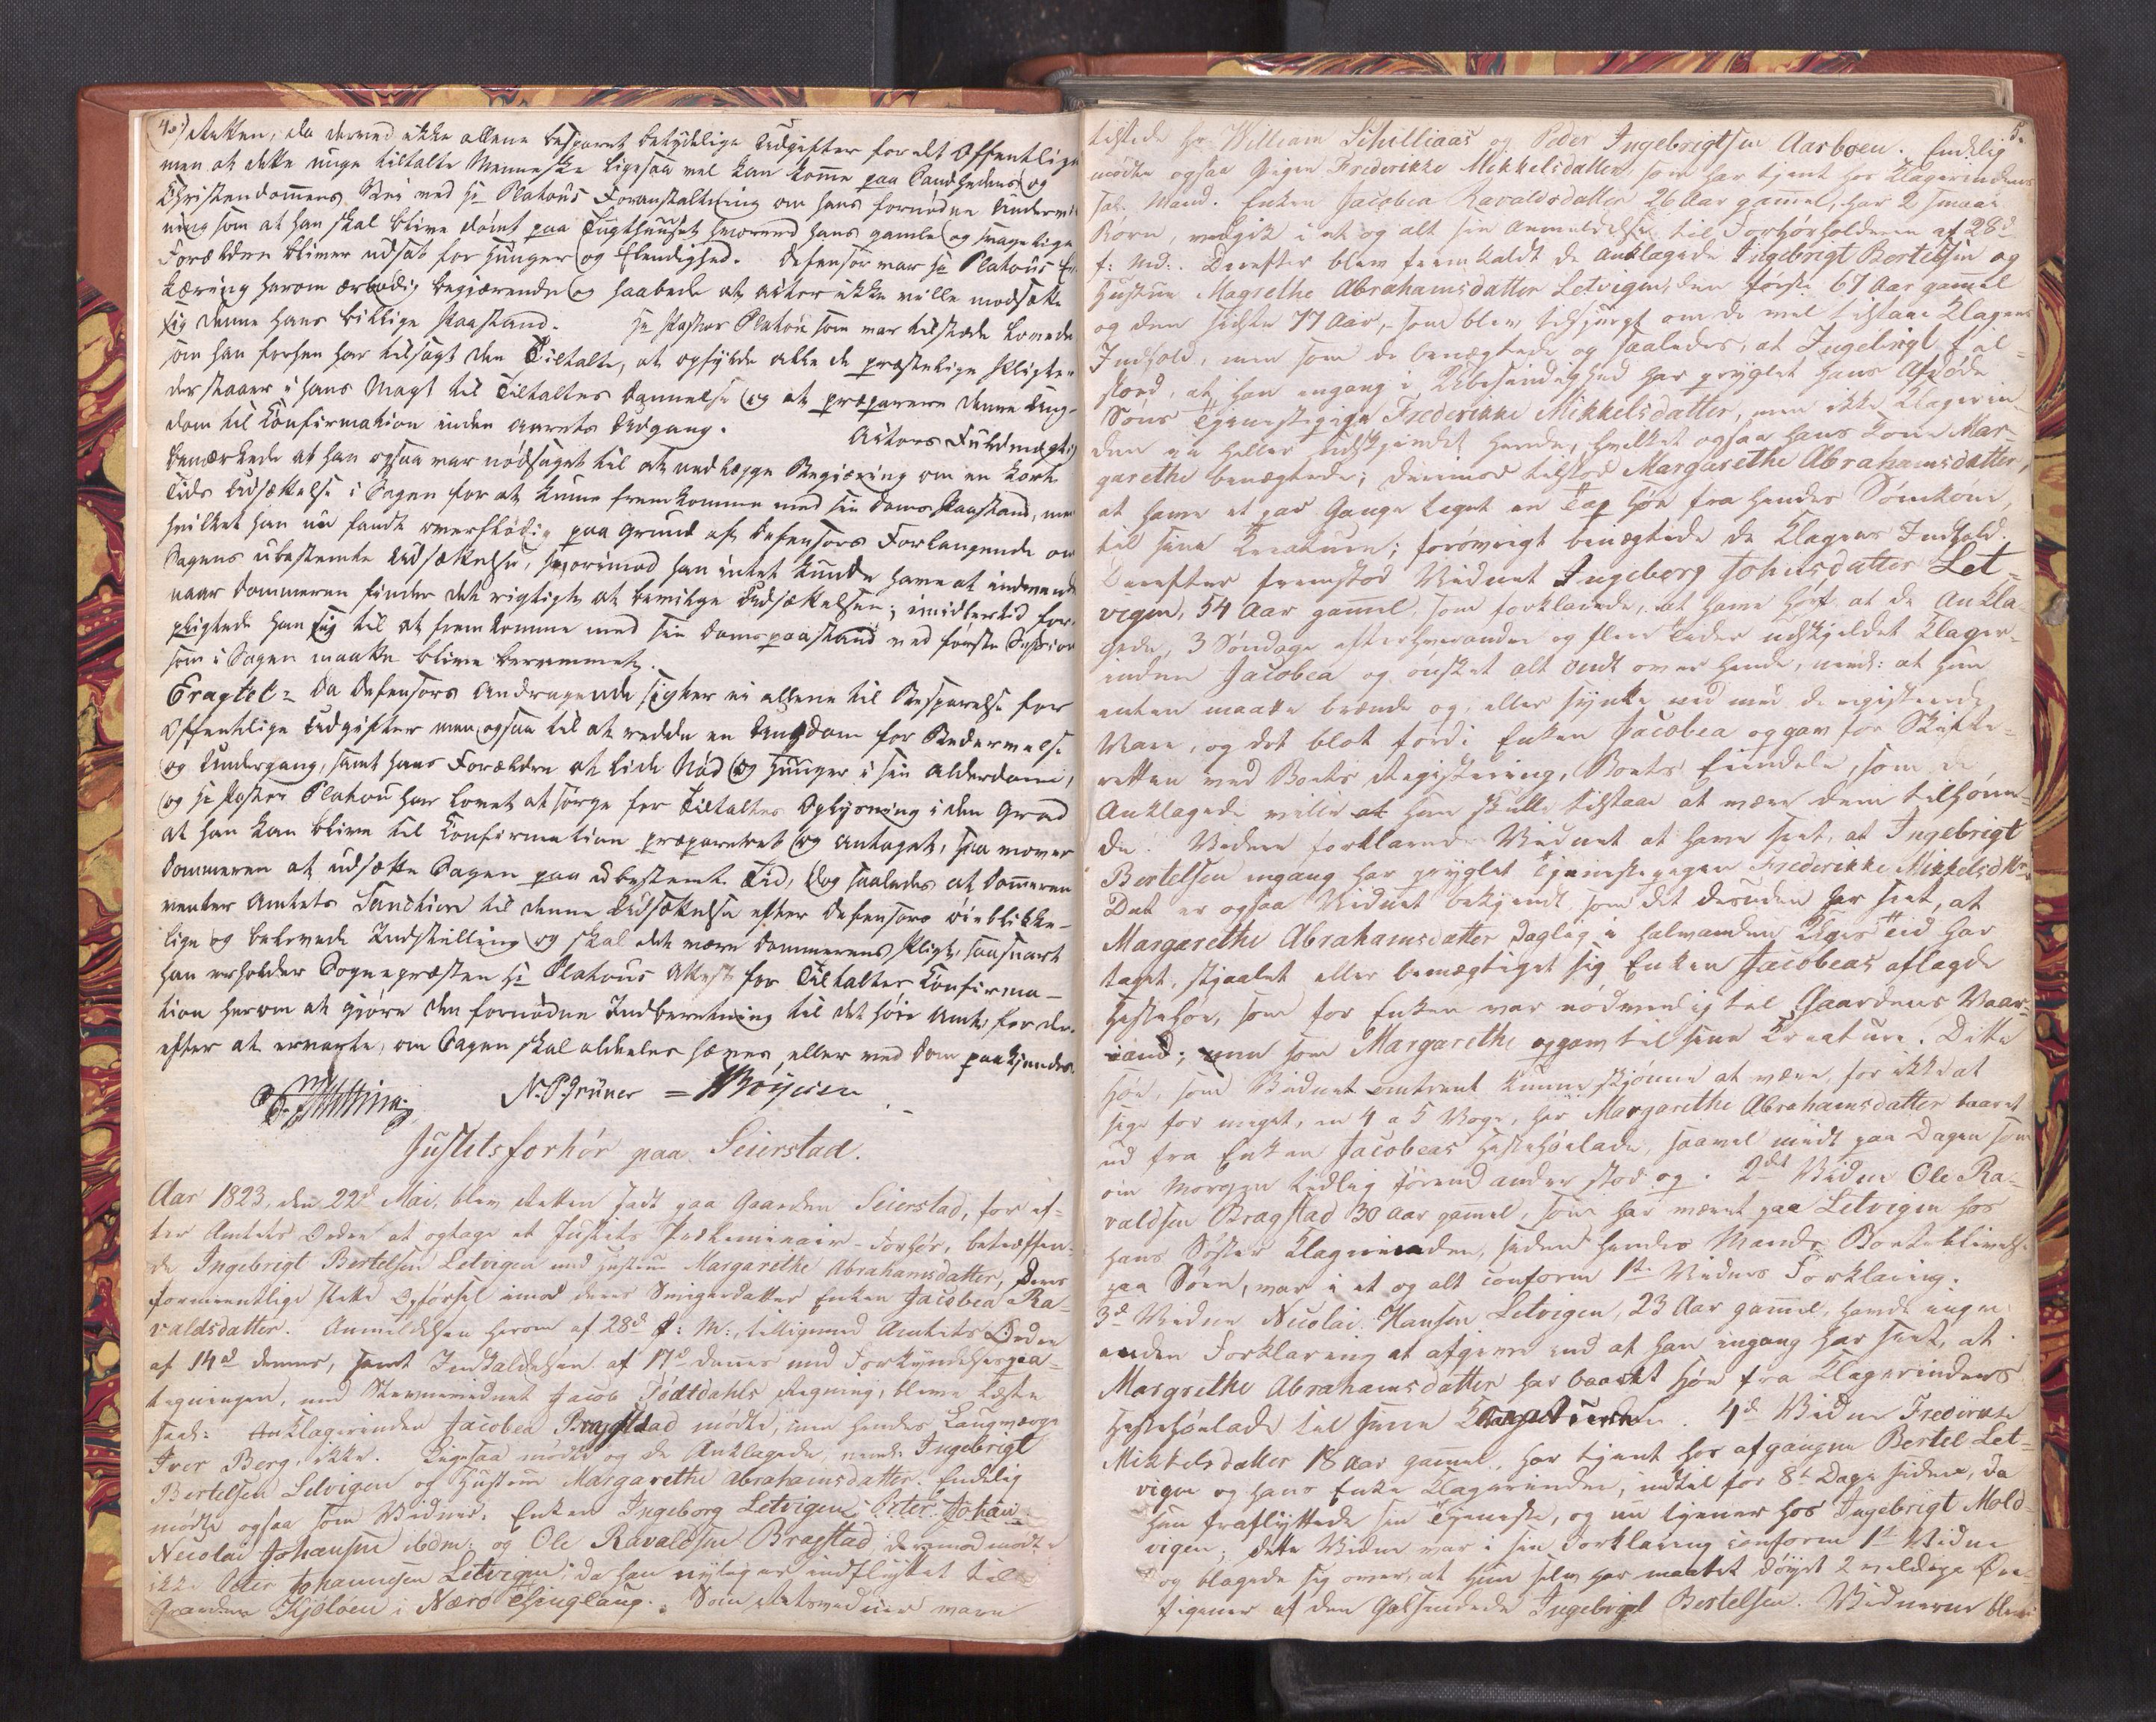 4.
Retten, da derved ikke allene besparet betydelige Udgifter for det Offentlige
men at dette unge tiltalte Menneske ligesaa vel kan komme paa Sandhedens og
Christendommens Vei ved Hr Platous Foranstaltning om hans fornødne Underviis
ning som at han skal blive dømt paa Tugthuuset hvorved hans gamle og svagelige
Forældre bliver udsat for Hunger og Elendighed. Defensor var Hr Platous Er
klæring herom ærbødig begjærende og haabede at Actor ikke ville modsætte
sig denne hans billige Paastand. Hr Pastor Platou som var tilstæde lovede
som han forhen har tilsagt den Tiltalte, at opfylde alle de præstelige Pligter
der staaer i hans Magt til Tiltaltes Dannelse og at præparere denne Ung-
dom til Confirmation inden Aarets Udgang. Actors Fuldmægtig
bemærkede at han ogsaa var nødsaget til at nedlægge Begjæring om en kort
Tids Udsættelse i Sagen for at kunne fremkomme med sin Doms Paastand, men
hvilket han nu fandt overflødig paa Grund af Defensors Forlangende om
Sagens ubestemte Udsættelse, hvorimod han intet kunde have at indvende
naar Dommeren finder det rigtigt at bevilge Udsættelsen; imidlertid for-
pligtede han sig til at fremkomme med sin Doms paastand ved første Session
som i Sagen maatte blive berammet.
Eragtet = Da Defensors Andragende sigter ei allene til Besparelse for
Offentlige Udgifter men ogsaa til at redde en Ungdom for Fordervelse
og Undergang, samt hans Forældre at lide Nød og Hunger i sin Alderdom,
og Hr Pastor Platou har lovet at sørge for Tiltaltes Oplysning i den Grad
at han kan blive til Confirmation præpareret og antaget, saa vover
Dommeren at udsætte Sagen paa ubestemt Tid, dog saaledes at Dommeren
venter Amtets Sanction til denne Udsættelse efter Defensors øieblikke-
lige og belovede Indstilling og skal det være Dommerens Pligt, saasnart
han erholder Sognepræsten Hr Platous Attest for Tiltaltes Confirma-
tion herom at gjøre den fornødne Indberetning til det høie Amt, for der-
efter at erwarte, om Sagen skal aldeles hæves eller ved Dom paakjendes.
N. P. Grüner = Böyesen
Justitsforhør paa Seierstad.
Aar 1823, den 22d Mai, blev Retten sadt paa Gaarden Seierstad, for ef-
ter Amtets Orden at optage et Justits Preliminair-Forhør, betræffen-
de Ingebrigt Bertelsen Letvigen med Hustrue Margarethe Abrahamsdatter, deres
formeentlige slette Opførsel imod deres Svigerdatter Enken Jacobea Ra-
valdsdatter. Anmeldelsen herom af 28d f: M:, tilligemed Amtets Orden
af 14d dennes, samt Indkaldelsen af 17d dennes med Forkyndelsespaa-
tegningen, med Stevnevidnet Jacob Tödtdahls Regning, bleve læste
saal: Anklagerinden Jacobea Bragstad mødte, men hendes Laugværge
Iver Berg, ikke. Ligesaa mødte og de Anklagede, neml: Ingebrigt
Bertelsen Letvigen og Hustrue Margarethe Abrahamsdatter. Endelig
mødte ogsaa som Vidner: Enken Ingeborg Letvigen, Peter Johan
Nicolai Johansen ibdm: og Ole Ravaldsen Bragstad, derimod mødte
ikke Peter Johannesen Letvigen, da han nyligen indflyttet til
Gaarden Kjöloen i Nærö Thinglaug. Som Retsvidner vare
5.
tilstede Hr William Schilliaas og Peder Ingebrigtsen Aarboen. Endelig
mødte ogsaa Pigen Frederikke Mikkelsdatter, som har tjent hos Klagerindens
sal: Mand. Enken Jacobea Ravaldsdatter 26 Aar gammel, har 2 smaae
Børn, vedgik i et og alt sin Anmeldelse til Forhørholderen af 28d
f: Md:. Derefter blev fremkaldt de anklagede Ingebrigt Bertelsen og
Hustrue Magrethe Abrahamsdatter Letvigen, den første 67 Aar gammel
og den sidste 77 Aar, som blev tilspurgt om de vil tilstaae Klagens
Indhold, men som de benægtede og saaledes, at Ingebrigt til-
stod, at han engang i Ubesindighed har pryglet hans Afdøde
Søns Tjenestepige Frederikke Mikkelsdatter, men ikke Klagerin-
den ei heller udskjendet hende, hvilket ogsaa hans Kone Mar-
garethe benægtede; derimod tilstod Margarethe Abrahamsdatter,
at have et par Gange taget en Tap Høe fra hendes Sønnekone,
til sine Kreature; forøvrigt benægtede de Klagens Indhold.
Derefter fremstod Vidnet Ingeborg Johnsdatter Let-
vigen, 54 Aar gammel, som forklarede, at have hørt at de Ankla-
gede, 3 Søndage efterhverandre og flere Tider udskjeldet Klager-
inden Jacobea og ønsket alt ondt over hende, neml: at hun
enten maatte brænde og, eller synke ned med de registrerede
Vare, og det blot fordi Enken Jacobea opgav for Skifte-
retten ved Boets Registrering, Boets Eiendele, som de
Anklagede ville at hun skulle tilstaae at være dem tilhøren-
de. Videre forklarede Vidnet at have seet, at Ingebrigt
Bertelsen engang har pryglet Tjenestepigen Frederikke Mikkelsdtr:
Det er ogsaa Vidnet bekjendt som det desuden har seet, at
Margarethe Abrahamsdatter daglig i halvanden Uges Tid har
taget, stjaalet eller bemægtiget sig Enken Jacobeas aflagde
Hestehøe, som for Enken var nødvendig til Gaardens Vaar-
aand; men som Margarethe opgav til sine Kreature. Dette
Høe, som Vidnet omtrent kunne skjønne at være, for ikke at
sige for meget, en 4 a 5 Voge, har Margarethe Abrahamsdatter baaret
ud fra Enken Jacobeas Hestehøelade, saavel midt paa Dagen som
om Morgen tidlig førend andre stod op. 2det Vidne Ole Ra-
valdsen Bragstad 30 Aar gammel, som har været paa Letvigen hos
hans Søster Klagerinden, siden hendes Mands Borteblivelse
paa Søen, var i et og alt conform 1ste Vidnes Forklaring.
3d Vidne Nicolai Hansen Letvigen, 23 Aar gammel, havde ingen
anden Forklaring at afgive end at han engang har seet, at
Margrethe Abrahamsdatter har baaret Høe fra Klagerindens
Hestehøelade til sine Kreature. 4d Vidne Frederikke
Mikkelsdatter 18 Aar gammel, har tjent hos afgangne Bertel Let-
vigen og hans Enke Klagerinden, indtil for 8te Dage siden, da
hun fraflyttede sin Tjeneste, og nu tjener hos Ingebrigt Mold-
vigen; dette Vidne var i sin Forklaring conform 1ste Vidne
og klagede sig over, at hun selv har maattet døyet 2 voldige Ør-
figener af den Galsindede Ingebrigt Bertelsen. Vidnerne bleve